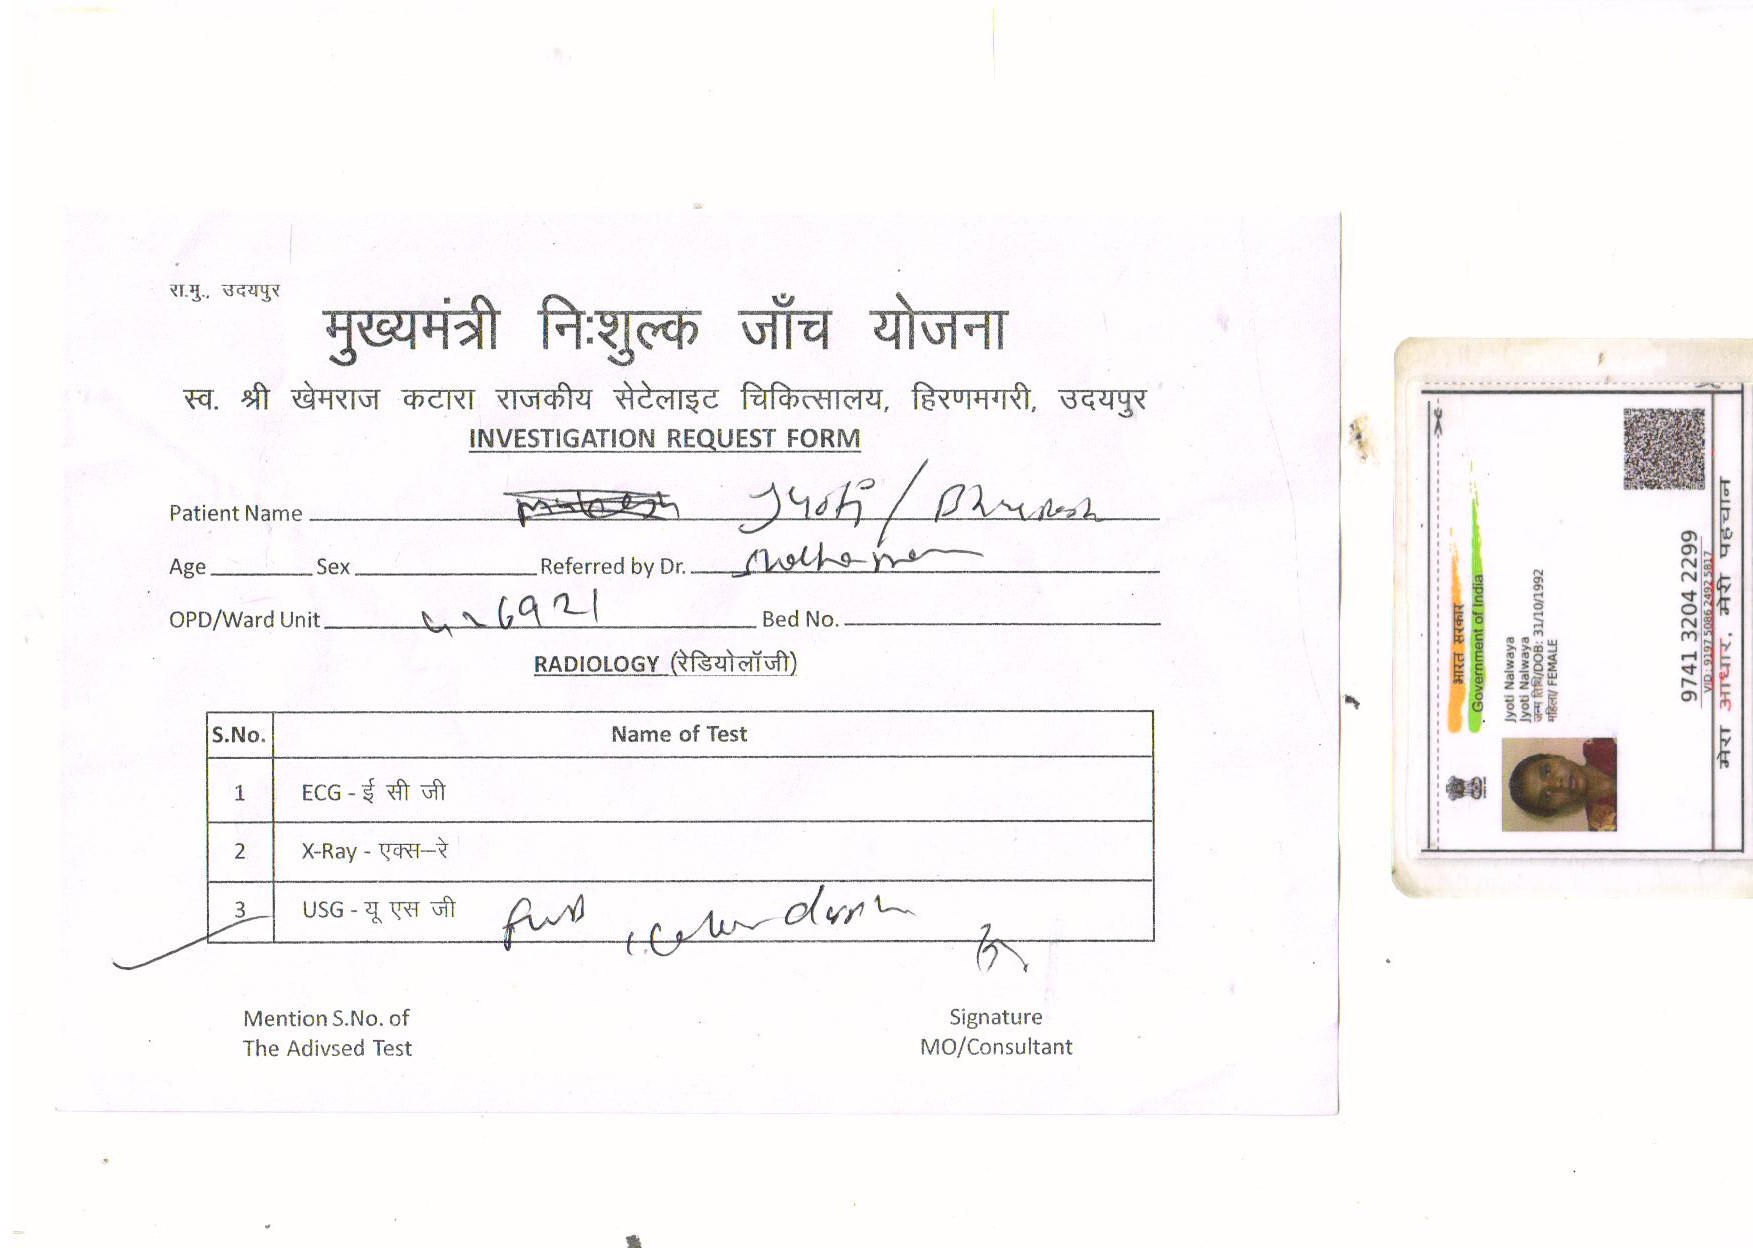 रा.मु., उदयपुर
मुख्यमंत्री निःशुल्क जाँच योजना
स्व. श्री खेमराज कटारा राजकीय सेटेलाइट चिकित्सालय, हिरणमगरी, उदयपुर
INVESTIGATION REQUEST FORM
Patient Name Jyoti /
Age Sex Referred by Dr.
OPD/Ward Unit 6921 Bed No.
RADIOLOGY (रेडियोलॉजी)
S.No. Name of Test
1 ECG - ई सी जी
2 X-Ray - एक्स–रे
3 USG - यू एस जी
Mention S.No. of
The Adivsed Test
Signature
MO/Consultant
भारत सरकार
Government of India
Jyoti Nalwaya
Jyoti Nalwaya
जन्म तिथि/DOB: 31/10/1992
महिला/ FEMALE
9741 3204 2299
VID: 9197 5086 2492 5817
मेरा आधार, मेरी पहचान